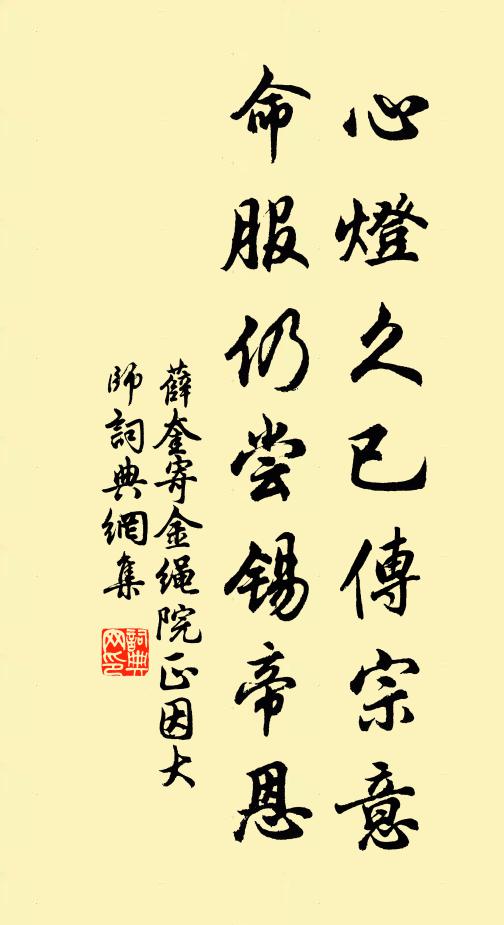 心燈久已傳宗意
命服仍尝锡帝恩
薛奎寄金绳院正因大
師詞典網集
詞典
网印